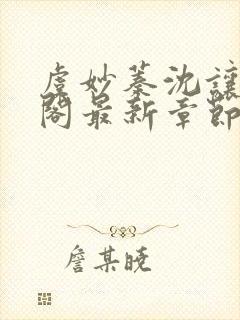 虞妙蓁沈讓
閣最新章節
詹某曉